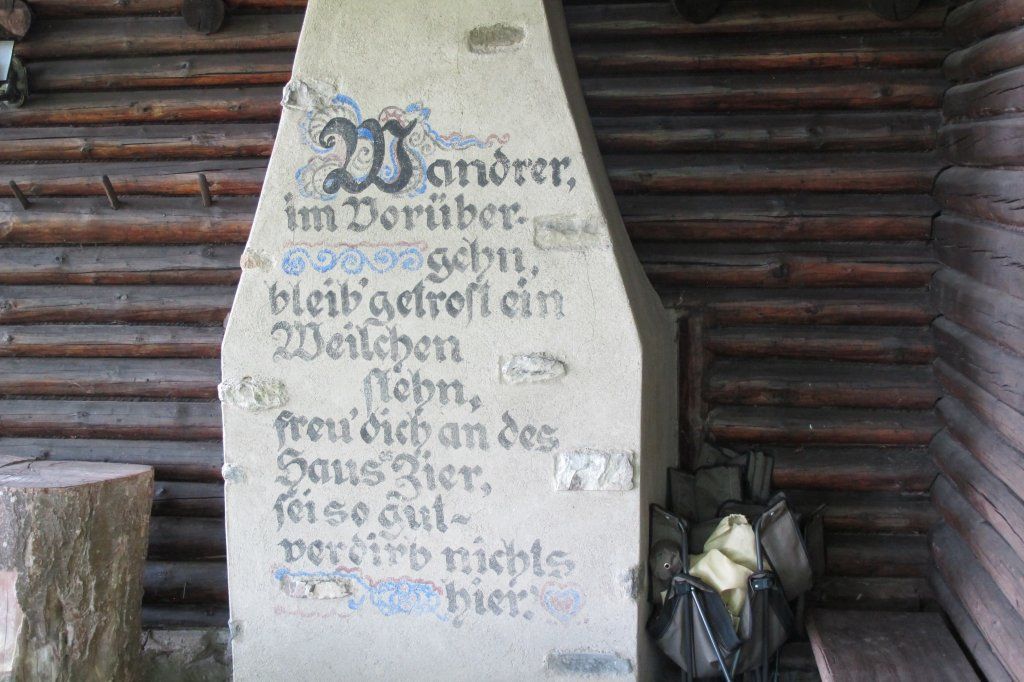 Wandrer,
im Vorüber-
gehn,
bleib' getrost ein
Weilchen
stehn,
freu' dich an des
Haus's Zier,
sei so gut -
verdirb nichts
hier.